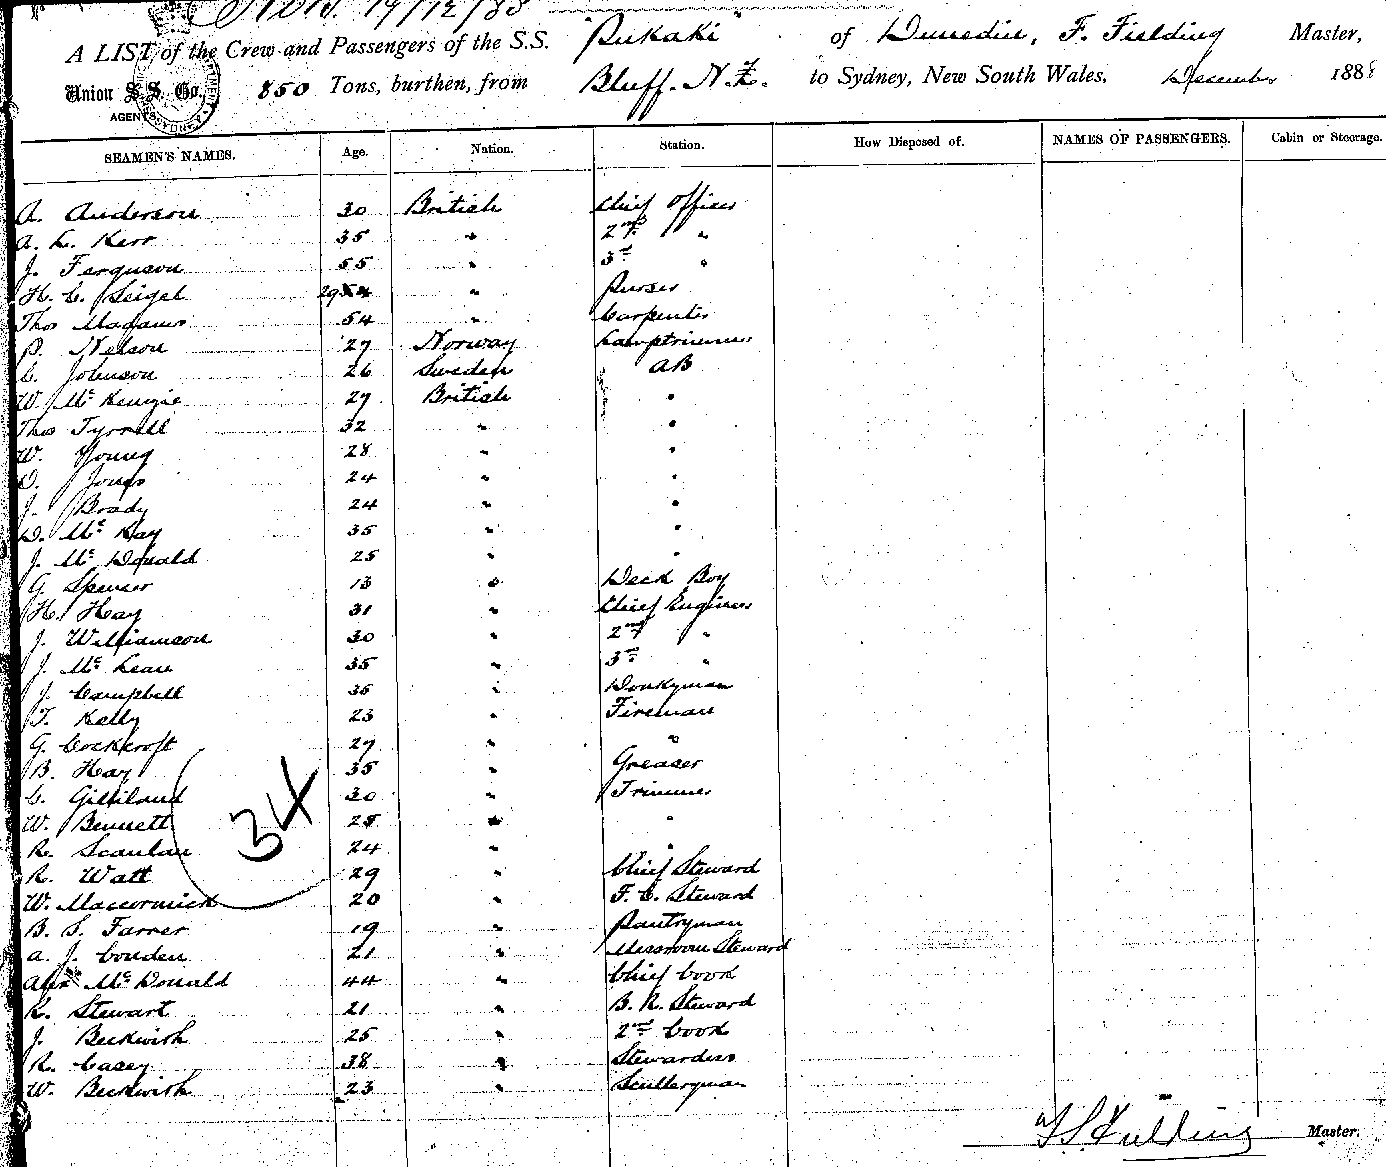 19/12/88
A LIST of the Crew and Passengers of the S.S. "Pukaki" of Dunedin, F. Fielding Master,
Union S.S. Co. 850 Tons, burthen, from Bluff. N.Z. to Sydney, New South Wales. December 1888
AGENTS
SEAMEN'S NAMES. Age. Nation. Station. How Disposed of. NAMES OF PASSENGERS. Cabin or Steerage.
A. Anderson 30 British Chief Officer
A. L. Kerr 35 " 2nd "
J. Ferguson 55 " 3rd "
H. C. Seigel 29 " Purser
Thos Madams 54 " Carpenter
P. Nelson 27 Norway Lamptrimmer
C. Johnson 26 Sweden AB
W. McKenzie 27 British "
Thos Tyrrell 32 " "
W. Young 28 " "
D. Jones 24 " "
J. Brady 24 " "
D. McKay 35 " "
J. McDonald 25 " "
G Spencer 13 " Deck Boy
H. Hay 31 " Chief Engineer
J. Williamson 30 " 2nd "
J. McLean 35 " 3rd "
J. Campbell 35 " Donkyman
T. Kelly 23 " Fireman
G. Cockcroft 27 " "
B. Hay 35 " Greaser
C. Gilliland 30 " Trimmer
34
W. Bennett 25 " "
R. Scanlan 24 " "
R. Watt 29 " Chief Steward
W. Maccormick 20 " F. C. Steward
B. S. Farrer 19 " Pantryman
A. J. Couden 21 " Messroom Steward
Alex McDonald 44 " Chief Cook
R. Stewart 21 " B. R. Steward
J. Beckwish 25 " 2nd Cook
R. Casey 38 " Stewardess
W. Beckwish 23 " Sculleryman
F S Fielding Master.